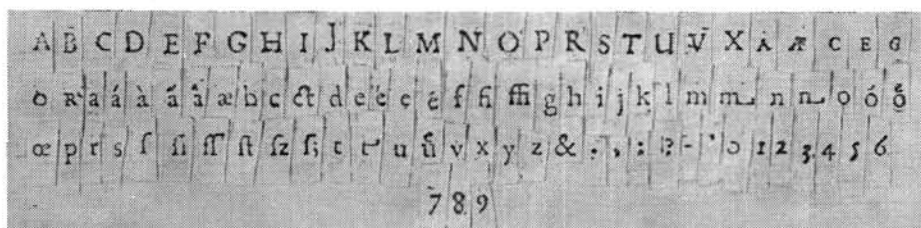 A B C D E F G H I J K L M N O P R S T U V X A Æ C E G
O R a á à a̋ æ b c ct d e è ę é f fi ffi g h i j k l m m n n o ó ő
œ p r s ſ ſi ſſ ſt ſz ſ; t t u ű v x y z & . , : !? - ' ɔ 1 2 3 4 5 6
7 8 9